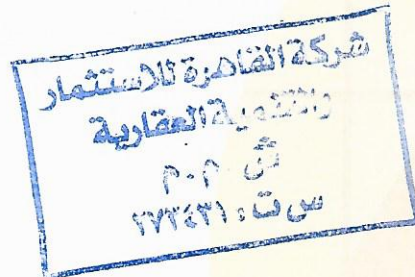 شركة القاهرة للاستثمار
والتنمية العقارية
ش.م.م
س.ت: ٢٧٣٤٣١